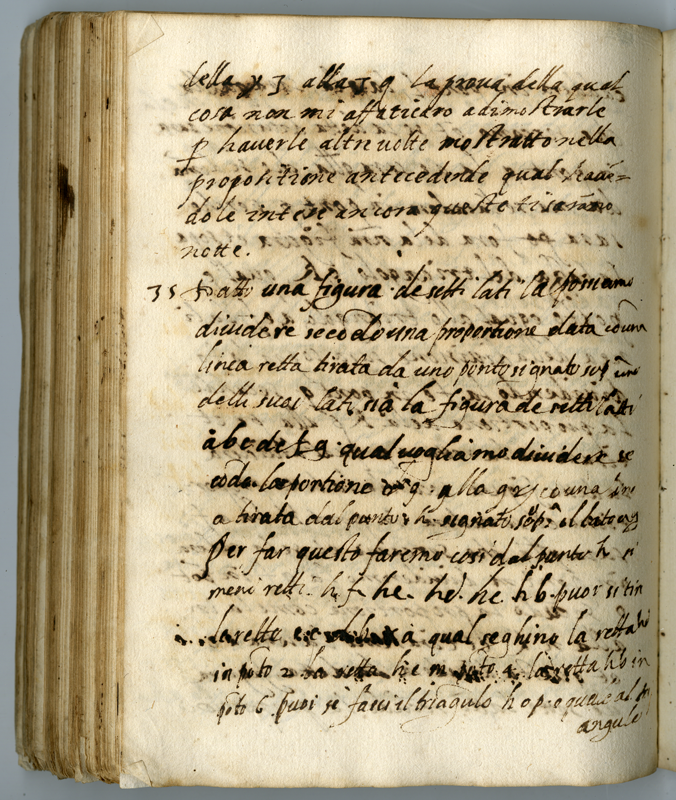 della y 3 alla 3 9 la prova della qual
cosa non mi affaticaro a dimostrarle
p haverle altre volte mostratto nella
propositione antecedende qual haue=
dole intese ancora questo ti sarano
notte.
35 Datto una figura de setti lati la possiamo
dividere secodo una proportione data co una
linea retta tirata da uno ponto signato sop uno
delli suoi lati sia la figura de setti lati
a b c d e f g qual vogliamo dividere se
codo la portione g alla g co una
a tirata dal ponto h signato sopra el lato a g
Per far questo faremo cosi dal ponto h si
meni retti h f. he. hd. hc. hb. puoi si tiri
la retta e c a qual seghino la retta hd
in poto 2 la retta h c in poto 4 la retta h b in
poto 6 puoi si facci il triagulo h o p
angule